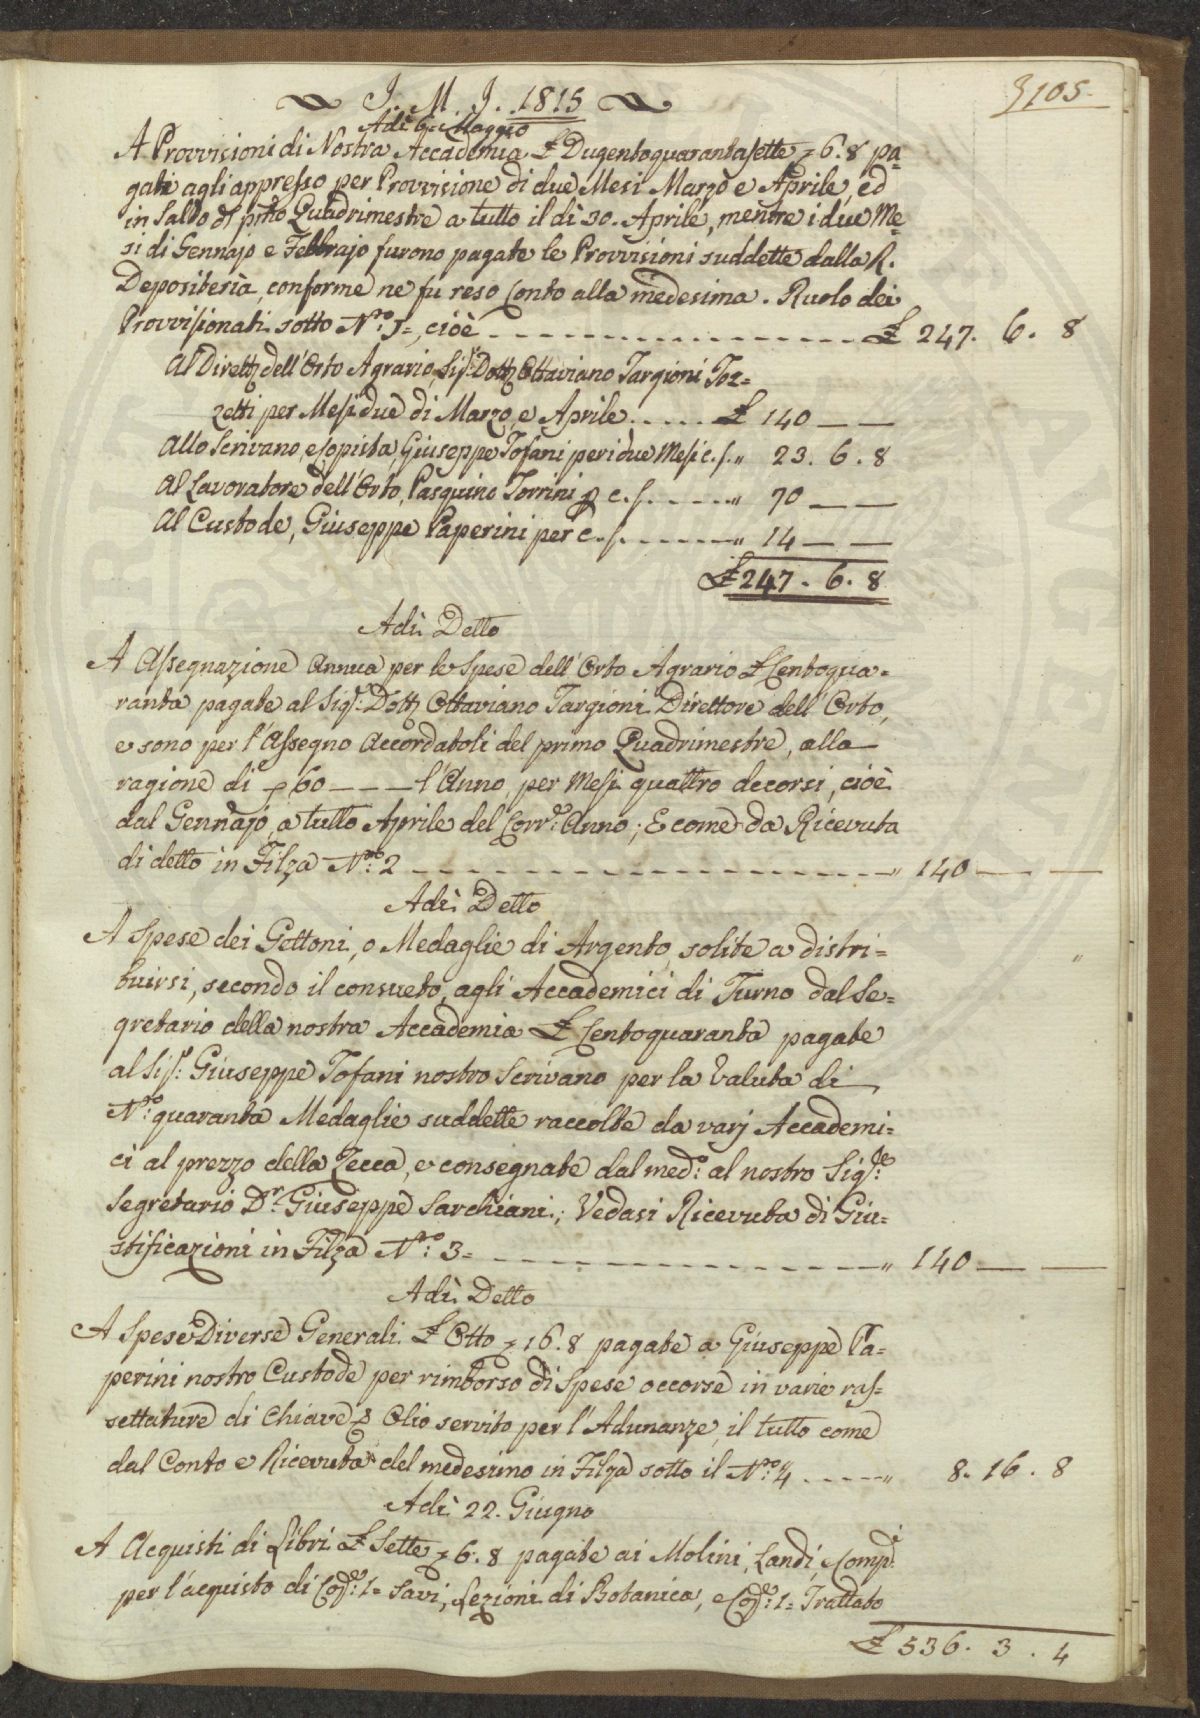 J. M. J. 1815
105.
Adì 6. Maggio
A Provvisioni di Nostra Accademia £ Dugentoquarantasette 6. 8 pa=
gate agli appresso per Provvisione di due Mesi Marzo e Aprile, ed
in Saldo di pmo Quadrimestre a tutto il dì 30. Aprile, mentre i due Me=
si di Gennajo e Febbrajo furono pagate le Provvisioni suddette dalla R.
Depositeria, conforme ne fu reso Conto alla medesima. Ruolo dei
Provvisionati sotto Nro. 1=, cioè £ 247. 6. 8
Al Dirett. dell'Orto Agrario, Sig. Dott. Ottaviano Targioni Toz=
zetti per Mesi due di Marzo, e Aprile £ 140 — —
Allo Scrivano, e Copista, Giuseppe Tofani per i due Mesi c. s. " 23. 6. 8
Al Lavoratore dell'Orto, Pasquino Torrini p c. s. " 70 — —
Al Custode, Giuseppe Paperini per c. s. " 14 — —
£ 247. 6. 8
Adì Detto
A Assegnazione Annua per le Spese dell'Orto Agrario £ Centoqua=
ranta pagate al Sig. Dott. Ottaviano Targioni Direttore dell'Orto,
e sono per l'Assegno Accordatoli del primo Quadrimestre, alla
ragione di 60 — — — l'Anno, per Mesi quattro decorsi, cioè
dal Gennajo, a tutto Aprile del Corr. Anno; E come da Ricevuta
di detto in Filza Nro. 2 " 140 — —
Adì Detto
A Spese dei Gettoni, o Medaglie di Argento, solite a distri=
buirsi, secondo il consueto, agli Accademici di Turno dal Se=
gretario della nostra Accademia £ Centoquaranta pagate
al Sig. Giuseppe Tofani nostro Scrivano per la Valuta di
Nro. quaranta Medaglie suddette raccolte da varj Accademi=
ci al prezzo della Zecca, e consegnate dal med. al nostro Sig.re
Segretario Dr. Giuseppe Sarchiani; Vedasi Ricevuta di Giu=
stificazioni in Filza Nro. 3= " 140 — —
Adì Detto
A Spese Diverse Generali £ Otto 16. 8 pagate a Giuseppe Pa=
perini nostro Custode per rimborso di Spese occorse in varie ras=
settature di Chiave, e Olio servito per l'Adunanze, il tutto come
dal Conto e Ricevuta del medesimo in Filza sotto il Nro. 4 " 8. 16. 8
Adì 22. Giugno
A Acquisti di Libri £ Sette 6. 8 pagate ai Molini, Landi, e Comp.i
per l'acquisto di Cop. 1= Savi, Lezioni di Botanica, e Cop. 1= Trattato
£ 536. 3. 4